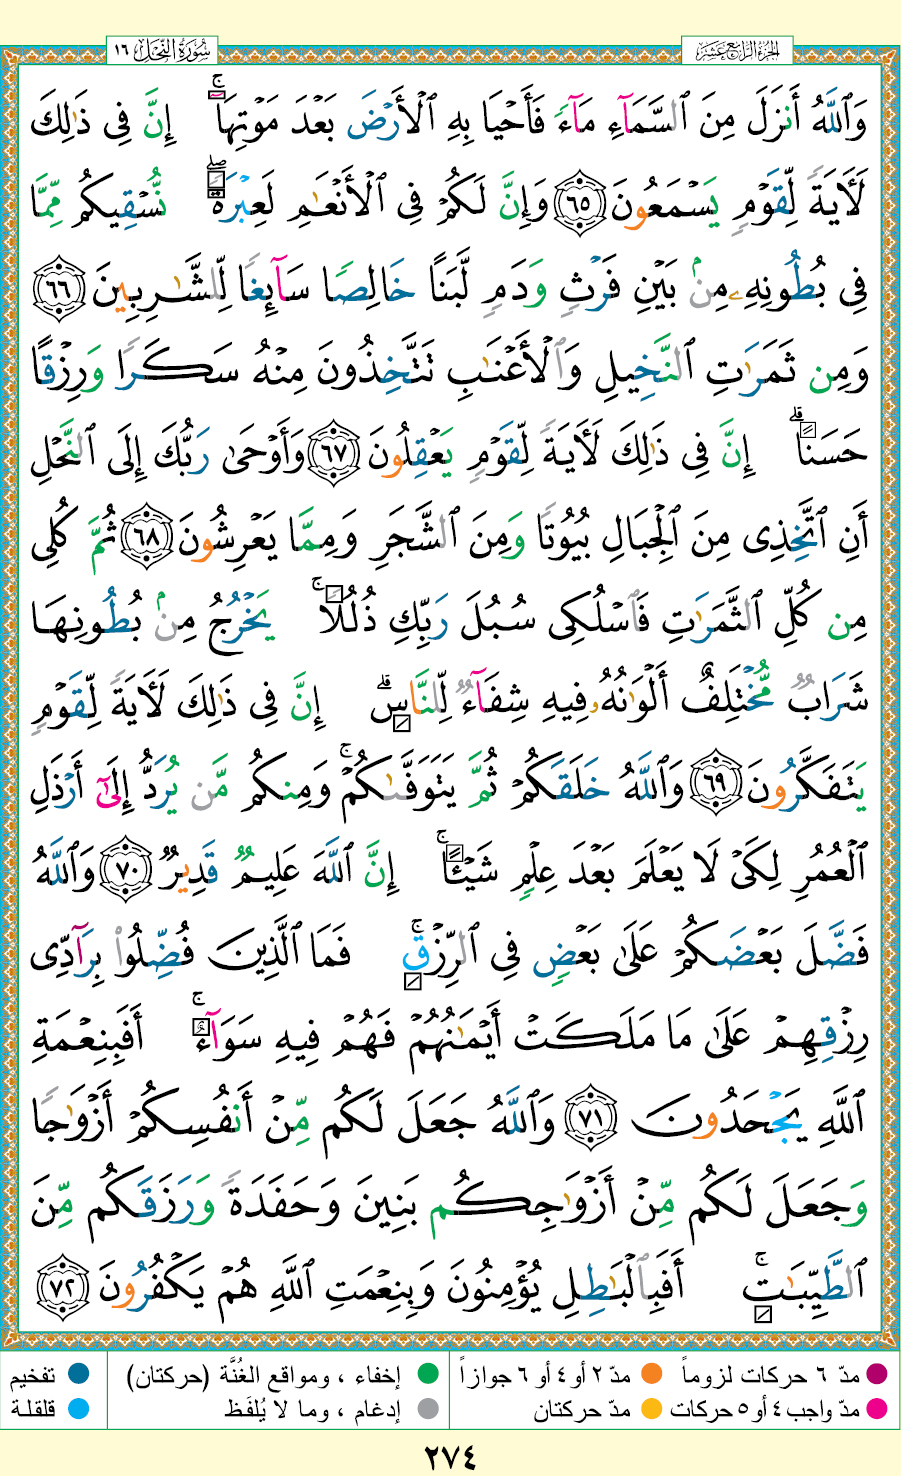 الجزء الرابع عشر
سورة النحل ١٦
وَٱللَّهُ أَنزَلَ مِنَ ٱلسَّمَآءِ مَآءً فَأَحْيَا بِهِ ٱلْأَرْضَ بَعْدَ مَوْتِهَآ ۚ إِنَّ فِى ذَٰلِكَ
لَـَٔايَةً لِّقَوْمٍ يَسْمَعُونَ ٦٥ وَإِنَّ لَكُمْ فِى ٱلْأَنْعَٰمِ لَعِبْرَةً ۖ نُّسْقِيكُم مِّمَّا
فِى بُطُونِهِۦ مِنۢ بَيْنِ فَرْثٍ وَدَمٍ لَّبَنًا خَالِصًا سَآئِغًا لِّلشَّٰرِبِينَ ٦٦
وَمِن ثَمَرَٰتِ ٱلنَّخِيلِ وَٱلْأَعْنَٰبِ تَتَّخِذُونَ مِنْهُ سَكَرًا وَرِزْقًا
حَسَنًا ۗ إِنَّ فِى ذَٰلِكَ لَـَٔايَةً لِّقَوْمٍ يَعْقِلُونَ ٦٧ وَأَوْحَىٰ رَبُّكَ إِلَى ٱلنَّحْلِ
أَنِ ٱتَّخِذِى مِنَ ٱلْجِبَالِ بُيُوتًا وَمِنَ ٱلشَّجَرِ وَمِمَّا يَعْرِشُونَ ٦٨ ثُمَّ كُلِى
مِن كُلِّ ٱلثَّمَرَٰتِ فَٱسْلُكِى سُبُلَ رَبِّكِ ذُلُلًا ۚ يَخْرُجُ مِنۢ بُطُونِهَا
شَرَابٌ مُّخْتَلِفٌ أَلْوَٰنُهُۥ فِيهِ شِفَآءٌ لِّلنَّاسِ ۗ إِنَّ فِى ذَٰلِكَ لَـَٔايَةً لِّقَوْمٍ
يَتَفَكَّرُونَ ٦٩ وَٱللَّهُ خَلَقَكُمْ ثُمَّ يَتَوَفَّىٰكُمْ ۚ وَمِنكُم مَّن يُرَدُّ إِلَىٰٓ أَرْذَلِ
ٱلْعُمُرِ لِكَىْ لَا يَعْلَمَ بَعْدَ عِلْمٍ شَيْـًٔا ۚ إِنَّ ٱللَّهَ عَلِيمٌ قَدِيرٌ ٧٠ وَٱللَّهُ
فَضَّلَ بَعْضَكُمْ عَلَىٰ بَعْضٍ فِى ٱلرِّزْقِ ۚ فَمَا ٱلَّذِينَ فُضِّلُوا۟ بِرَآدِّى
رِزْقِهِمْ عَلَىٰ مَا مَلَكَتْ أَيْمَٰنُهُمْ فَهُمْ فِيهِ سَوَآءٌ ۚ أَفَبِنِعْمَةِ
ٱللَّهِ يَجْحَدُونَ ٧١ وَٱللَّهُ جَعَلَ لَكُم مِّنْ أَنفُسِكُمْ أَزْوَٰجًا
وَجَعَلَ لَكُم مِّنْ أَزْوَٰجِكُم بَنِينَ وَحَفَدَةً وَرَزَقَكُم مِّنَ
ٱلطَّيِّبَٰتِ ۚ أَفَبِٱلْبَٰطِلِ يُؤْمِنُونَ وَبِنِعْمَتِ ٱللَّهِ هُمْ يَكْفُرُونَ ٧٢
مدّ ٦ حركات لزوماً
مدّ ٢ أو ٤ أو ٦ جوازاً
إخفاء ، ومواقع الغُنَّة (حركتان)
تفخيم
مدّ واجب ٤ أو ٥ حركات
مدّ حركتان
إدغام ، وما لا يُلفَظ
قلقلة
٢٧٤